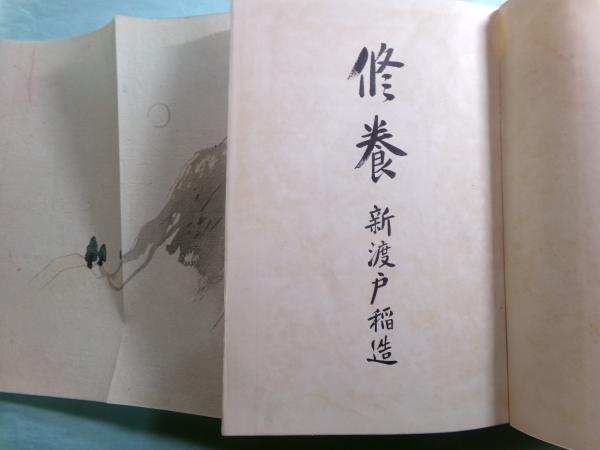 修養
新渡戸稲造